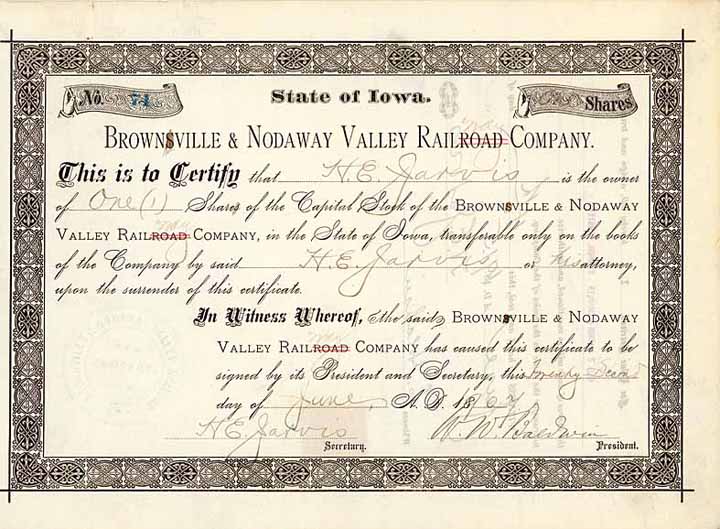 No. 71 State of Iowa. One Shares
BROWNSVILLE & NODAWAY VALLEY RAILROAD COMPANY.
This is to Certify that H. E. Jarvis is the owner
of One (1) Shares of the Capital Stock of the BROWNSVILLE & NODAWAY
VALLEY RAILROAD COMPANY, in the State of Iowa, transferable only on the books
of the Company by said H. E. Jarvis or his attorney,
upon the surrender of this certificate.
In Witness Whereof, the said BROWNSVILLE & NODAWAY
VALLEY RAILROAD COMPANY has caused this certificate to be
signed by its President and Secretary, this Twenty Second
day of June, A. D. 18
H. E. Jarvis W. W. Baldwin
Secretary. President.